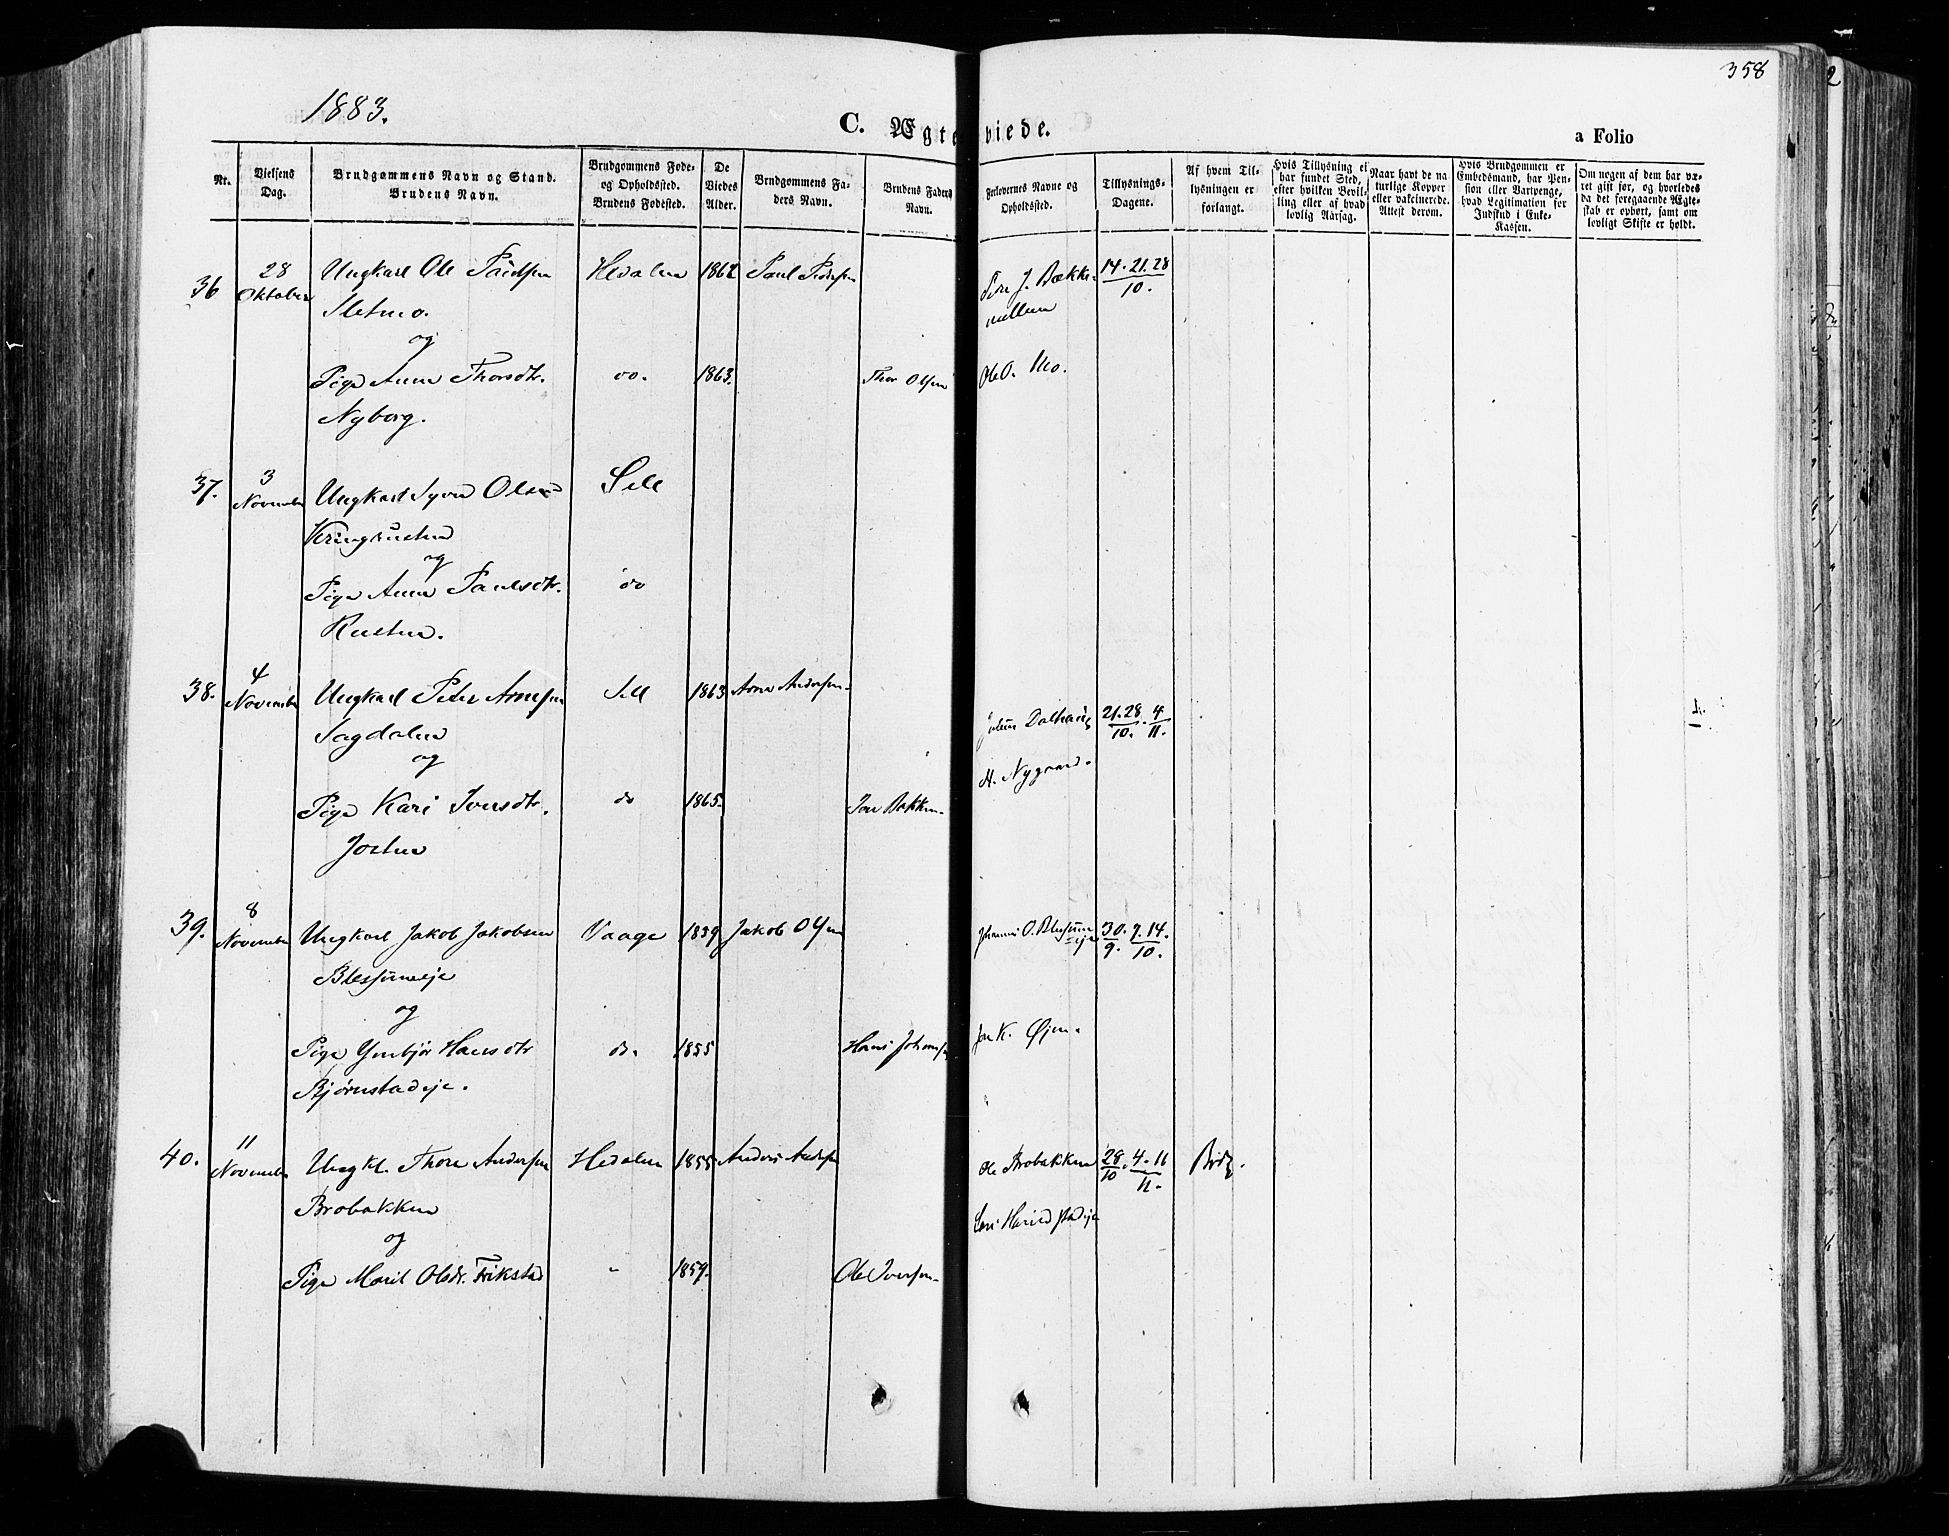 1883.
358
C. Ægteviede.
a Folio
Nr.
Vielsens Dag.
Brudgommens Navn og Stand.
Brudens Navn.
Brudgommens Føde- og Opholdssted.
Brudens Fødested.
De Viedes Alder.
Brudgommens Faders Navn.
Brudens Faders Navn.
Forlovernes Navne og Opholdssted.
Tillysnings-Dagene.
Af hvem Tillysningen er forlangt.
Hvis Tillysning ei har fundet Sted, efter hvilken Bevilling eller af hvad lovlig Aarsag.
Naar havt de naturlige Kopper eller vakcinerede. Attest derom.
Hvis Brudgommen er Embedsmand, har Pension eller Vartpenge, hvad Legitimation for Indskud i Enke-Kassen.
Om nogen af dem har været gift før, og hvorledes da det foregaaende Ægteskab er ophørt, samt om lovligt Skifte er holdt.
36 28 Oktober Ungkarl Ole Hedalen 1862 Paul 14. 21. 28
Sletmo. 10.
og
Pige Anne Thorsdtr. do. 1863. Thor Olsen Ole O. Mo.
Nyborg.
37. 3 November Ungkarl Syver Olsen Sell
og
Pige Anne Paulsdtr. do
Rusten.
38. 4 November Ungkarl Peder Arnesen Sell 1863 Arne Andersen Dalhaug 21. 28 / 10. 4 / 11.
Sagdalen
og H. Nygaard.
Pige Kari Iversdtr. do 1865. Bakken
39. 8 November Ungkarl Jakob Jakobsen Vaage 1859 Jakob Olsen 30 / 9. 7. 14. / 10.
Blessumeje
og
Pige Hansdtr do. 1855 Hans Johansen Jon K. Øjen.
Bjørnstadeje.
40. 11 November Ungkl. Thore Andersen Hedalen 1855 Anders Ole Brobakken 28 / 10. 4. 11 / 11. Brdg.
Brobakken
og
Pige Marit Olsdr. 1859. Ole Iversen